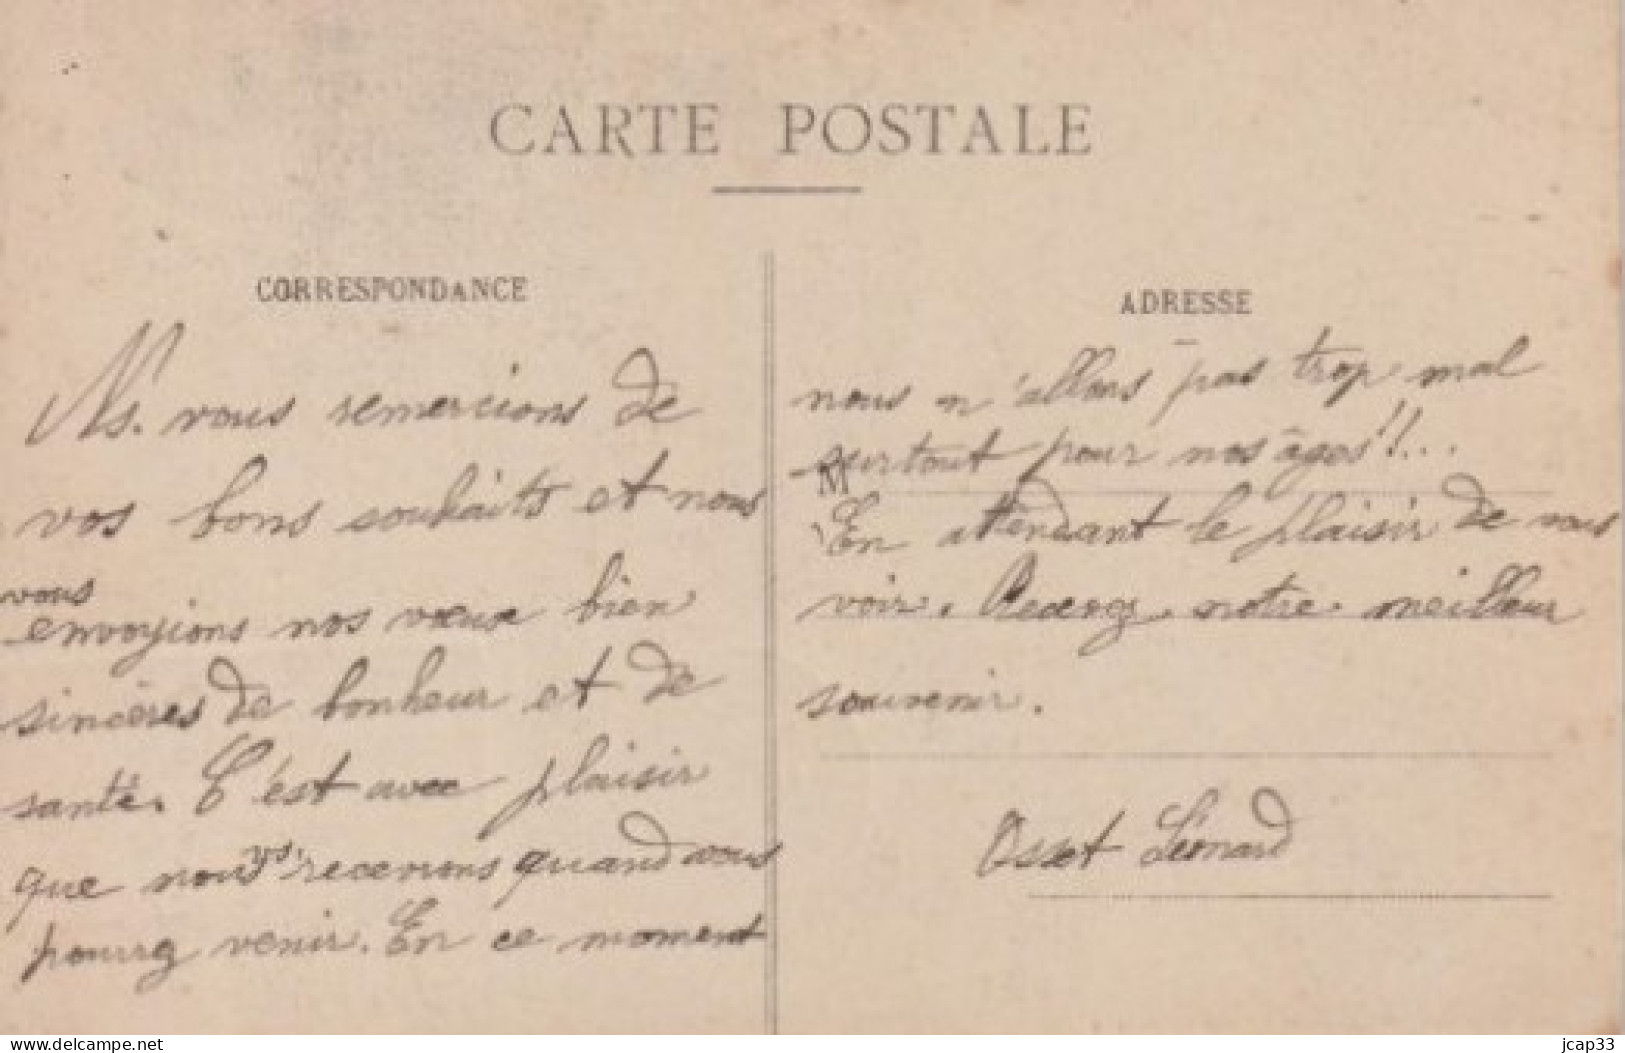 CARTE POSTALE
CORRESPONDANCE
Ns. vous remercions de
vos bons souhaits et nous
vous
envoyions nos vœux bien
sincères de bonheur et de
santé. C'est avec plaisir
que nous vs. recevrons quand vous
pourrez venir. En ce moment
ADRESSE
nous n'allons pas trop mal
surtout pour nos âges!!...
M
En attendant le plaisir de vous
voir. Recevez notre meilleur
souvenir.
Osset Léonard
delcampe.net
jcap33